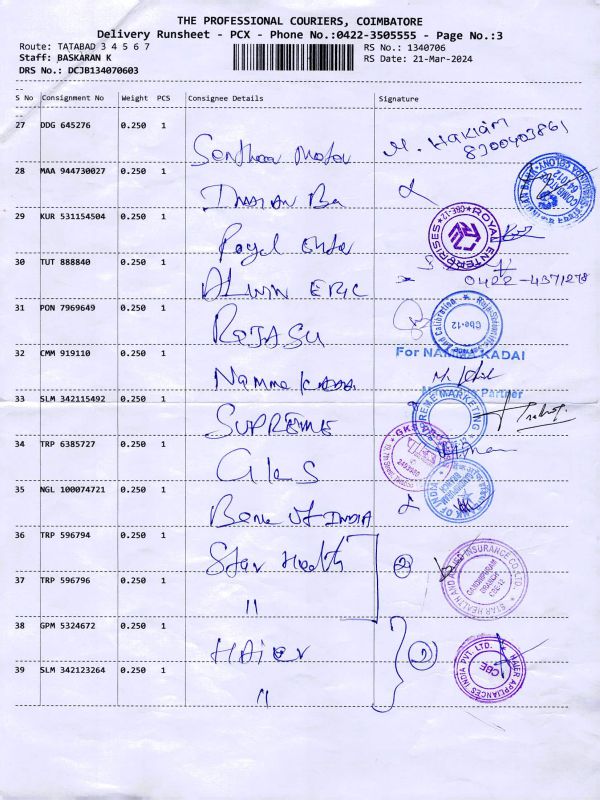 THE PROFESSIONAL COURIERS, COIMBATORE
Delivery Runsheet - PCX - Phone No.:0422-3505555 - Page No.:3
Route: TATABAD 3 4 5 6 7
RS No.: 1340706
Staff: BASKARAN K
RS Date: 21-Mar-2024
DRS No.: DCJB134070603
S No Consignment No Weight PCS Consignee Details Signature
27 DDG 645276 0.250 1
M. HAKIAM
8300403861
28 MAA 944730027 0.250 1
29 KUR 531154504 0.250 1
Royal
ROYAL ENTERPRISES
30 TUT 888840 0.250 1
ALWIN ERIC
0422-4371278
31 PON 7969649 0.250 1
ROJASU
and Calibration
Cbe-12
32 CMM 919110 0.250 1
Namma KADAI
For NAMMA KADAI
Partner
33 SLM 342115492 0.250 1
SUPREME
SUPREME MARKETING
34 TRP 6385727 0.250 1
GKS
35 NGL 100074721 0.250 1
Bank of INDIA
BANK OF INDIA
36 TRP 596794 0.250 1
Star Health
2
STAR HEALTH AND ALLIED INSURANCE CO.LTD.
GANDHIPURAM
BRANCH
CBE-12
37 TRP 596796 0.250 1
"
38 GPM 5324672 0.250 1
HAier
2
HAIER APPLIANCES INDIA PVT. LTD.
CBE
39 SLM 342123264 0.250 1
"